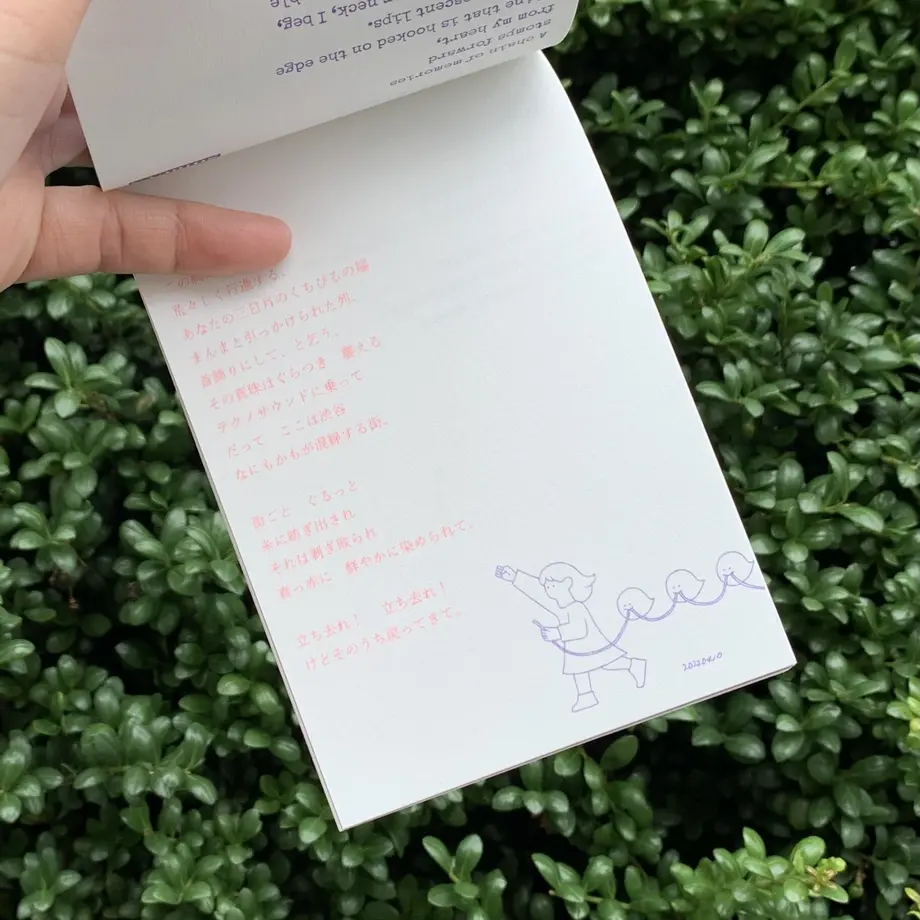 A chain of memories
stomps forward
from my heart,
that is hooked on the edge
lips.
neck, I beg,
荒々しく行進する。
あなたの三日月のくちびるの端
まんまと引っかけられた列、
首飾りにして、と乞う。
その真珠はぐらつき　震える
テクノサウンドに乗って
だって　ここは渋谷
なにもかもが混線する街。
街ごと　ぐるっと
糸に紡ぎ出され
それは剥ぎ取られ
真っ赤に　鮮やかに染められて。
立ち去れ！　立ち去れ！
けどそのうち戻ってきて。